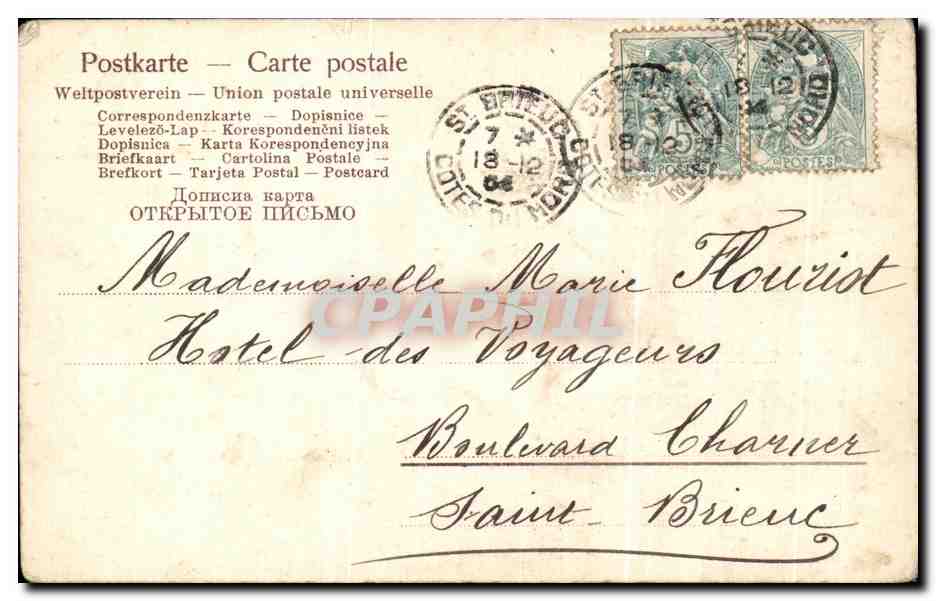 Postkarte — Carte postale
Weltpostverein — Union postale universelle
Correspondenzkarte — Dopisnice —
Levelező-Lap — Korespondenční listek
Dopisnica — Karta Korespondencyjna
Briefkaart — Cartolina Postale —
Brefkort — Tarjeta Postal — Postcard
Дописна карта
ОТКРЫТОЕ ПИСЬМО
ST BRIEUC
7 *
18 -12
04
COTES DU NORD
ST BRIEUC
18 -12
04
COTES
5
POSTES
BRIEUC
*
18 12
04
NORD
POSTES
Mademoiselle Marie Flouriot
Hotel des Voyageurs
Boulevard Charner
Saint-Brieuc
CPAPHIL